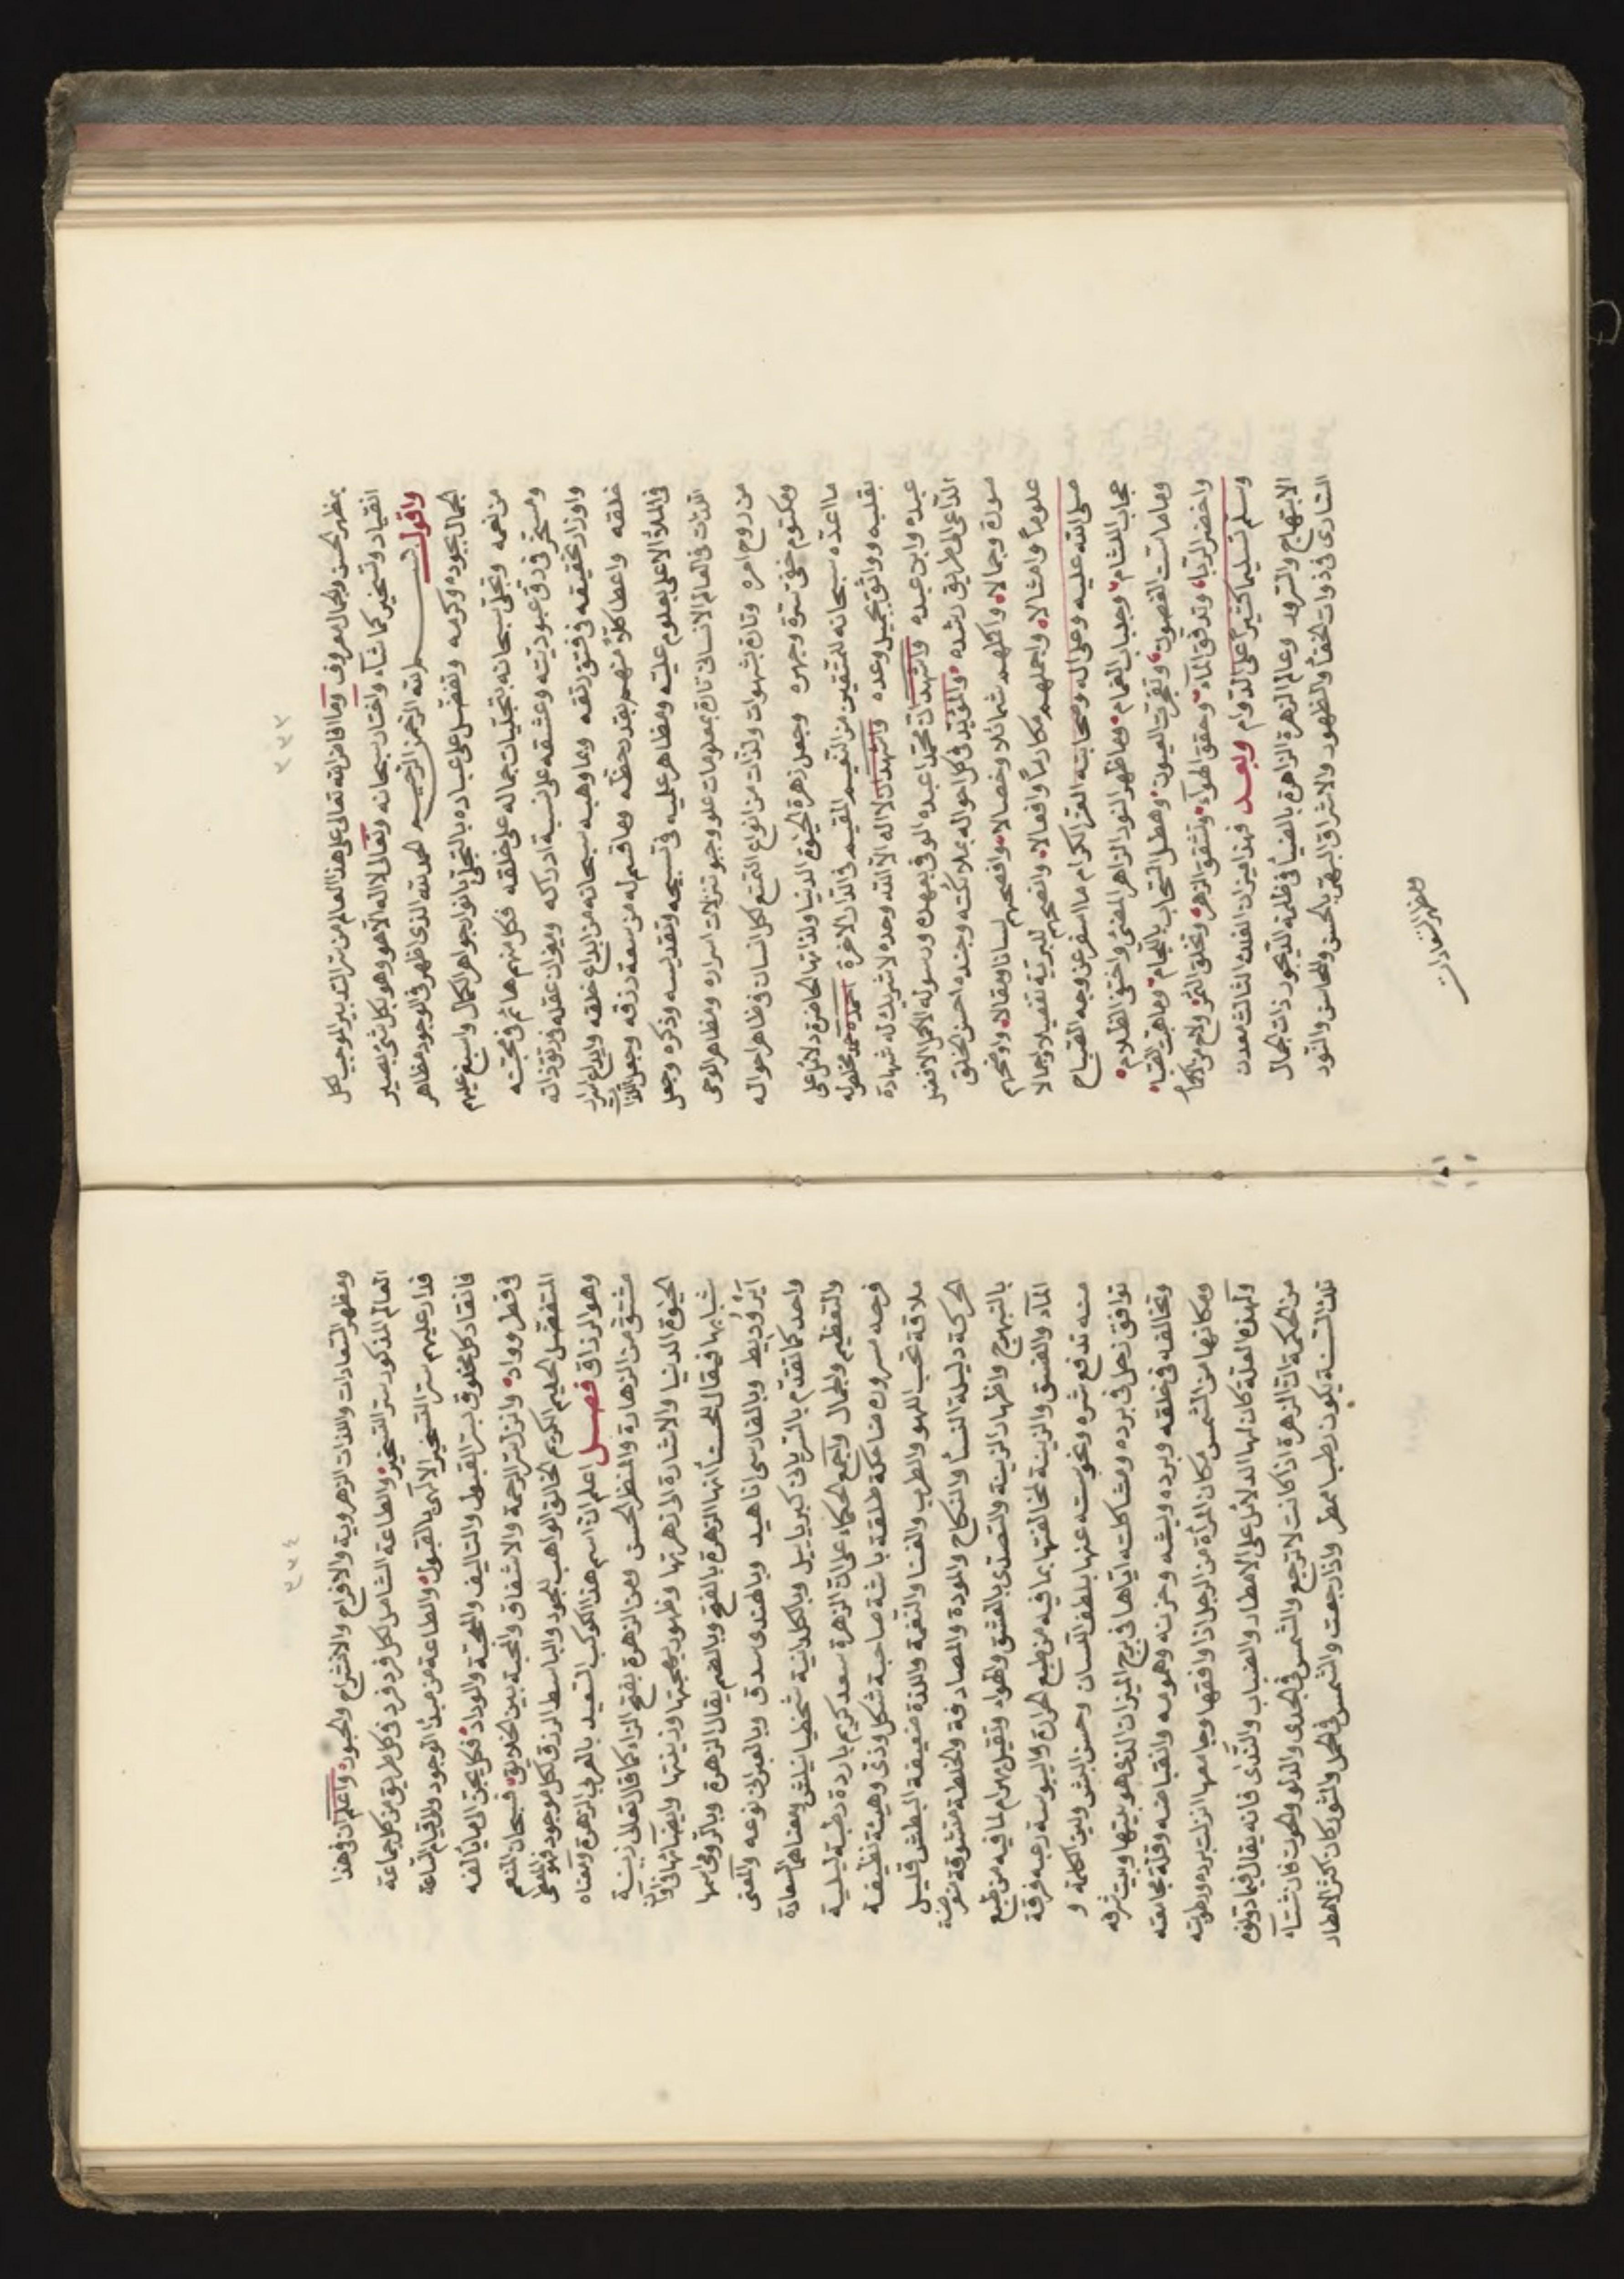 ٣٣٣
بمظهر الحسن والجمال معروف وما افاض الله تعالى على هذا العالم من سر التدبير الموجب لكل
انقياد وتسخير كما شآء واختار سبحانه وتعالى لا اله الا هو وهو بكل شئ بصير
واقول بسم الله الرحمن الرحيم الحمد لله الذى اظهر فى الوجود مظاهر
الجمال بجوده وكرمه وتفضل على عباده بالتجلى جواهر الكمال واسبغ عليهم
من نعمه وتجلى سبحانه بتجليات جماله على خلقه فكل منهم هائم فى محبته
فى رق عبوديته وعشقه على نسبة ادراكه وميزان عقله فى رتق ذاته
تحقيقه فى فتق رتقه وما وهبه سبحانه من ابداع خلقه
خلقه واعطا كلا منهم بقدر حظه وما قسم له من سعة رزقه وجعل
فى الملأ الاعلى بعلوم عليه ومظاهر علميه فى تسبيحه وتقديسه وذكره وجعل
اللذات فى العالم الانسانى تارة بمعلومات تنزلات اسراره ومظاهر الوحى
من روح امره وتارة بشهوات ولذات من انواع التمتع لكل انسان فى ظاهر احواله
ومكتوم خفى سره وجهره وجعل زهرة الحيوة الدنيا ولذاتها الحاضرة دلائل على
ما اعده سبحانه للمتقين من النعيم المقيم فى الدار الاخرة احمده حمد مخلص له
بقلبه وواثق بجميل وعده واشهد ان لا اله الا الله وحده لا شريك له شهادة
عبده وابن عبده واشهد ان محمدا عبده الموفى بعهده ورسوله الاكمل الافضل
الداعى الى طريق رشده والمؤيد فى كل احواله بملائكته وجنده احسن الخلق
صورة وجمالا واكملهم شمائلا وخصالا وافصحهم لسانا ومقالا واوضحهم
علوما وامثالا واجملهم مكارما وافعالا وانصحهم للبرية تفصيلا واجمالا
صلى الله عليه وعلى اله وصحابته الغر الكرام ما اسفر عن وجه الصباح
حجاب اللثام وجلباب الغمام وما ظهر النور الزاهر المضئ واختفى الظلام
وما ماست الغصون وتفجرت العيون وهطل السحاب وما هبت
واخضر الربا وتدفق المآء وخفق الهوآء وتشقق الزهر وتخلق الثمر ولاح من
وسلم تسليما كثيرا على الدوام وبعد فهذا ميزان الفلك الثالث معدن
الابتهاج والسرور وعالم الزهرة الزاهرة بالضيآء فى ظلمة الديجور ذات الجمال
السارى فى ذوات الخفآء والظهور والاشراق البهى بالحسن والمحاسن والنور
ومظهر السعادات
٣٣٤
ومظهر السعادات واللذات الزهروية والافراح والانشراح والحبور واعلم ان فى هذا
العالم المذكور سر التسخير والطاعة الشامل لكل فرد فرد فى كل طريق من كل جماعة
فدار عليهم سر التسخير الالهى بالقبول والطاعة من مبدأ الوجود والى قيام الساعة
فانقاد كل مخلوق بسر القبول والتاليف والمحبة والوداد فكل يحن الى ما يألفه
فى قطر وواد وانزلت الرحمة والاشفاق والمحبة بين الخلايق فسبحان المنعم
المتفضل الحليم الكريم الخالق الواهب للجود والباسط الرزق لكل موجود فهو المعطى
وهو الرزاق فصل اعلم ان اسم هذا الكوكب السعيد بالعربى الزهرة ومعناه
مشتق من الزهارة والمنظر الحسن ومن الزهرة بفتح الزاء كما قال تعالى زينة
الحيوة الدنيا والاشارة الى زهرتها وظهور بهجتها وزينتها وايضا
شبابها فيقال للحسنآء انها الزهرة بالفتح وبالضم يقال الزهرة وبالرومى اسمها
وبالفارسى اناهيد وبالهندى سدق وبالعبرانى نوغه والمعنى
واحد كما تقدم بالسريانى وبالكلدانية ومعناها السعادة
والتعظيم والجمال واجمع الحكماء على ان الزهرة سعد كريم باردة رطبة ليلية
فرحه مسروره ضاحكة طلقة باشة صاحبة شكل وذى وهيئة نظيفة
ملاقة تحب اللهو والطرب والغنا والنغمة واللذة ضعيفة البطش قليل
الحركة دليلة النسآء والنكاح والمودة والمصادقة والخلطة
بالتبهرج واظهار الزينة والتصدى بالعشق والهواء بهرام لما فيه من طبع
المآء والفسق والزينة لمخالفتها بما فيه من طبع الحرارة واليبوسة
منه تدفع شره ونحوسته عنها بلطف اللسان وحسن البش ولين الكلمة و
توافق زحل فى برده ومشاكلته اياها فى برج الميزان الذى هو بيتها وبيت شرفه
وتخالفه فى خلقه وبرده ويبسه وحزنه وهمومه وانقباضه وقلة مجامعته
ومكانها من الشمس مكان المرأة من الرجل اذا وافقها وجامعها انزلت برده ورطوبته
ولهذه العلة كان لها الدلائل على الامطار والضباب والندى فانه يقال
من الحكمة ان الزهرة اذا كانت لا ترجع والشمس فى الجدى والدلو والحوت فان شتآء
تلك السنة يكون رطبا ممطر واذا رجعت والشمس فى الحمل والثور كان كثير الامطار